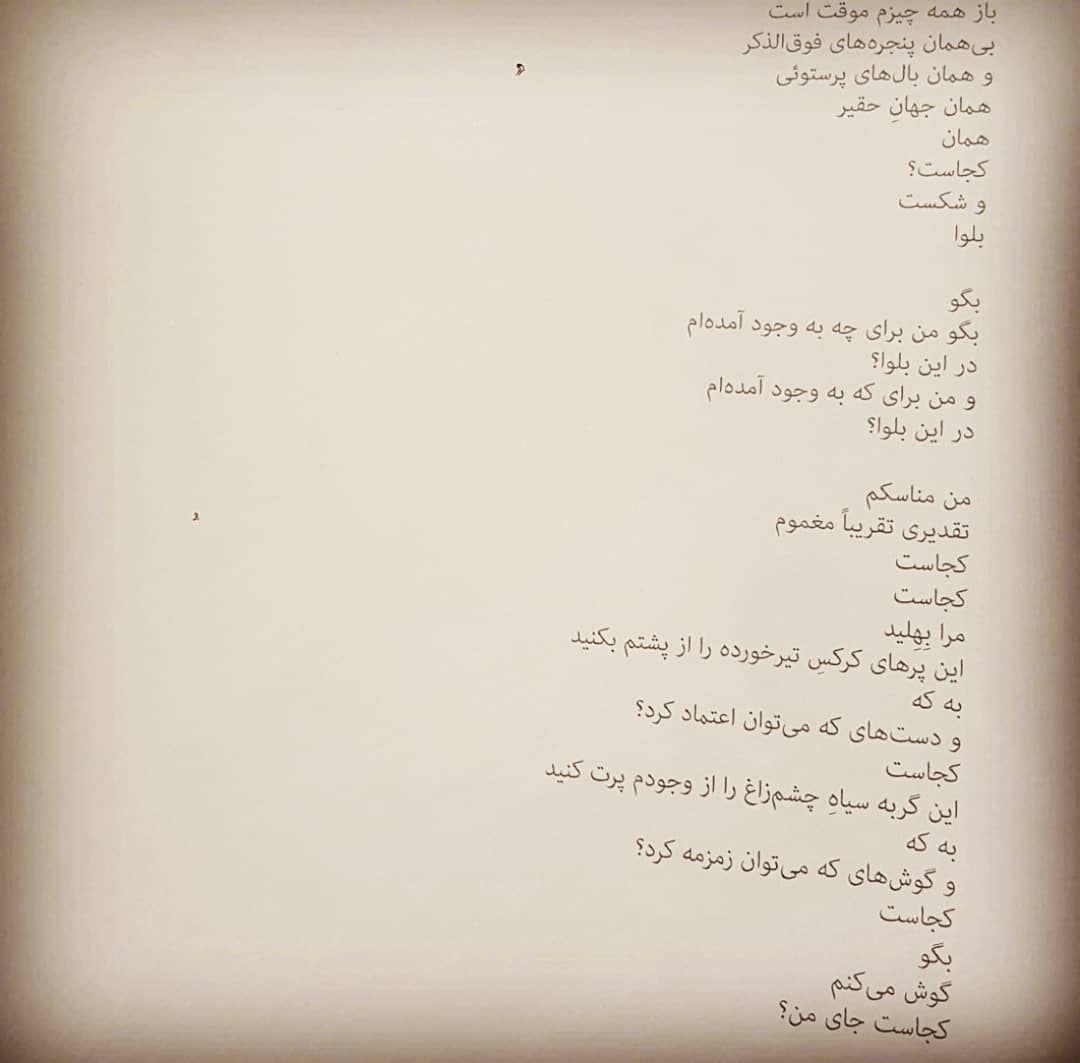 باز همه چیزم موقت است
بی‌همان پنجره‌های فوق‌الذکر
و همان بال‌های پرستوئی
همان جهانِ حقیر
همان
کجاست؟
و شکست
بلوا
بگو
بگو من برای چه به وجود آمده‌ام
در این بلوا؟
و من برای که به وجود آمده‌ام
در این بلوا؟
من مناسکم
تقدیری تقریباً مغموم
کجاست
کجاست
مرا بِهِلید
این پرهای کرکسِ تیرخورده را از پشتم بکنید
به که
و دست‌های که می‌توان اعتماد کرد؟
کجاست
این گربه سیاهِ چشم‌زاغ را از وجودم پرت کنید
به که
و گوش‌های که می‌توان زمزمه کرد؟
کجاست
بگو
گوش می‌کنم
کجاست جای من؟